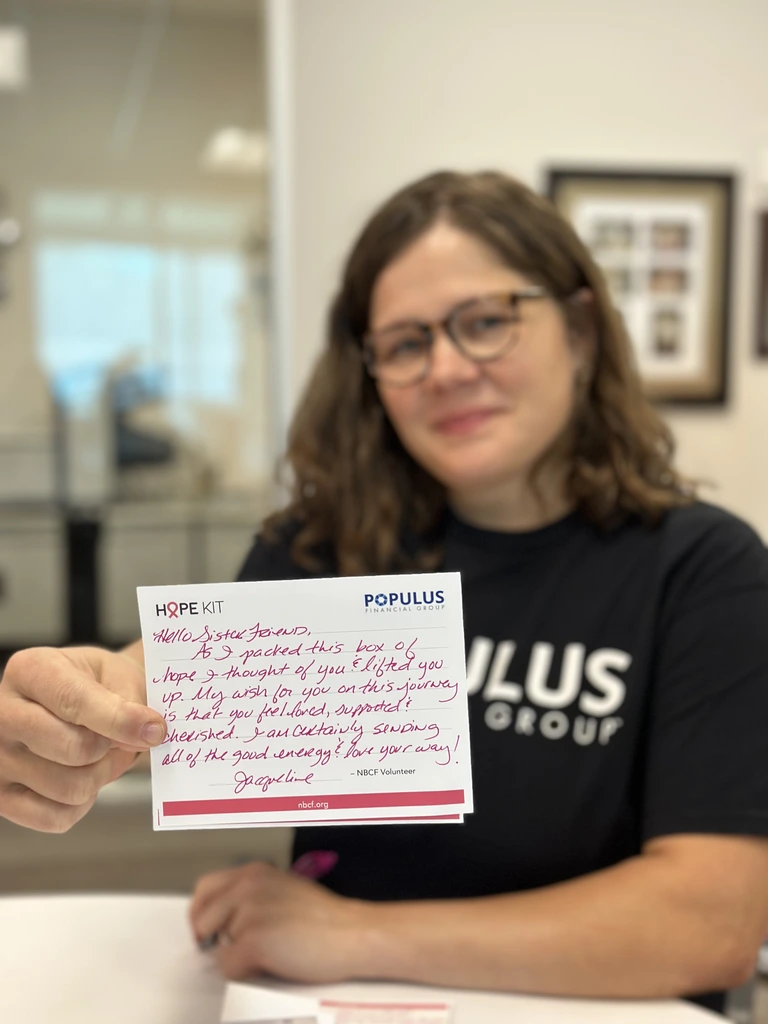 HOPE KIT
POPULUS
FINANCIAL GROUP
Hello Sister Friend,
As I packed this box of
hope I thought of you & lifted you
up. My wish for you on this journey
is that you feel loved, supported &
cherished. I am certainly sending
all of the good energy & love your way!
Jacqueline
– NBCF Volunteer
nbcf.org
ULUS
GROUP